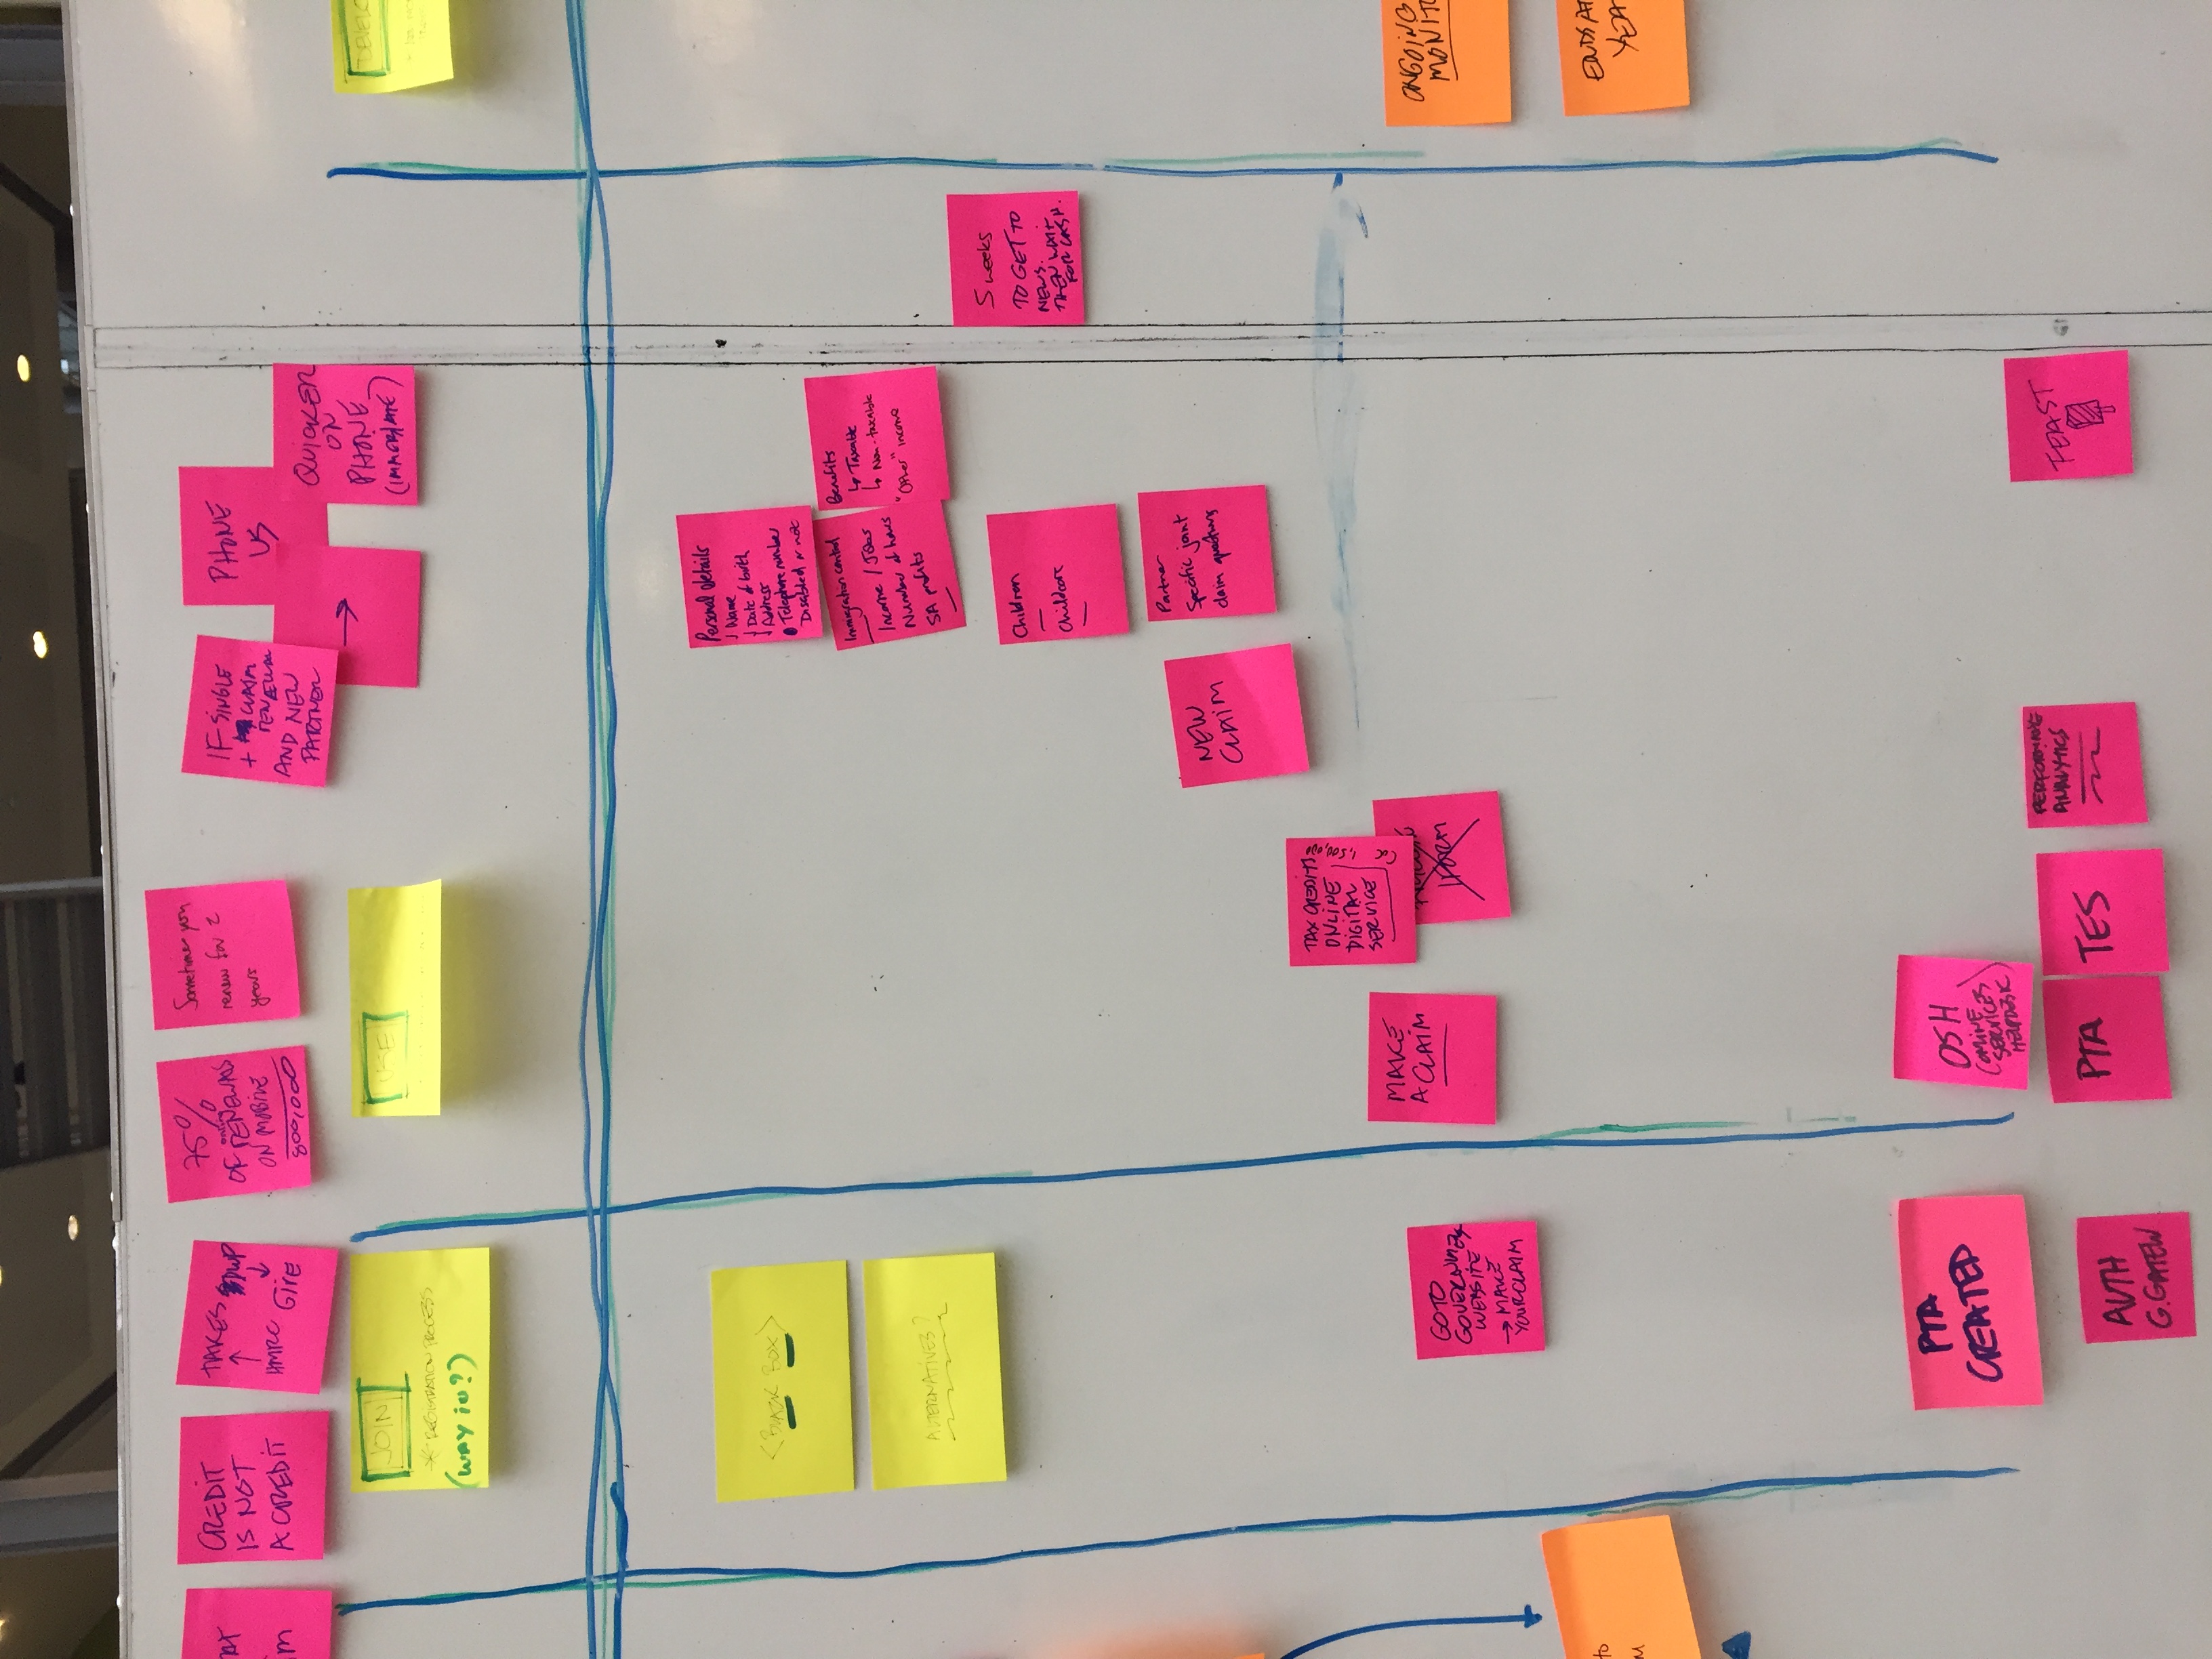 CREDIT
IS NOT
A CREDIT
TAKES DWP
HMRC GIVE
75%
online
OF RENEWALS
ON MOBILE
800,000
Sometimes you
renew for 2
years
IF SINGLE
+ CLAIM
RENEWAL
AND NEW
PARTNER
PHONE
US
→
QUICKER
ON
PHONE
(IMMEDIATE)
JOIN
* REGISTRATION PROCESS
(WAY IN?)
USE
<BLACK BOX>
ALTERNATIVES?
Personal details
Name
Date of birth
Address
Telephone number
Disabled or not
Immigration control
Income / Jobs
Number of hours
SA profits
Benefits
↳ Taxable
↳ Non-taxable
"Other" income
Children
Childcare
5 weeks
TO GET TO
NEWS.
THEN WAIT
FOR CASH.
Partner
Specific joint
claim questions
NEW
CLAIM
TAX CREDITS
ONLINE
DIGITAL
SERVICE
1,500,000
MAKE
A CLAIM
FORM
GO TO
GOVERNMENT
WEBSITE
→ MAKE
YOUR CLAIM
ONGOING
MONITO
ENDS AT
YEA
to
PTA
CREATED
OSH
(ONLINE
SERVICES
HELPDESK)
AUTH
G.GATEW
PTA
TES
PERFORMANCE
ANALYTICS
FEAST